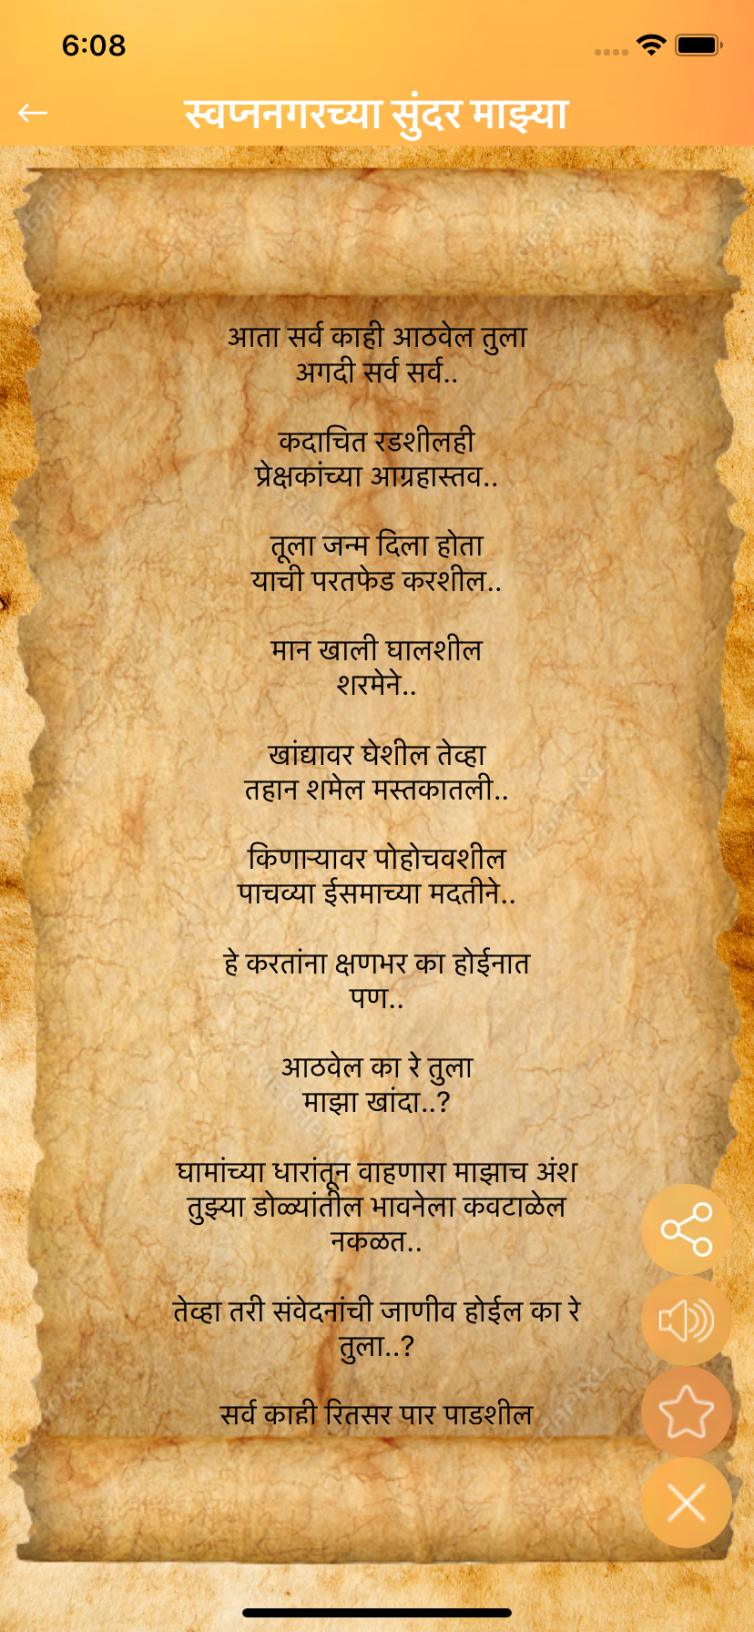 6:08
स्वप्ननगरच्या सुंदर माझ्या
आता सर्व काही आठवेल तुला
अगदी सर्व सर्व..
कदाचित रडशीलही
प्रेक्षकांच्या आग्रहास्तव..
तूला जन्म दिला होता
याची परतफेड करशील..
मान खाली घालशील
शरमेने..
खांद्यावर घेशील तेव्हा
तहान शमेल मस्तकातली..
किणाऱ्यावर पोहोचवशील
पाचव्या ईसमाच्या मदतीने..
हे करतांना क्षणभर का होईनात
पण..
आठवेल का रे तुला
माझा खांदा..?
घामांच्या धारांतून वाहणारा माझाच अंश
तुझ्या डोळ्यांतील भावनेला कवटाळेल
नकळत..
तेव्हा तरी संवेदनांची जाणीव होईल का रे
तुला..?
सर्व काही रितसर पार पाडशील